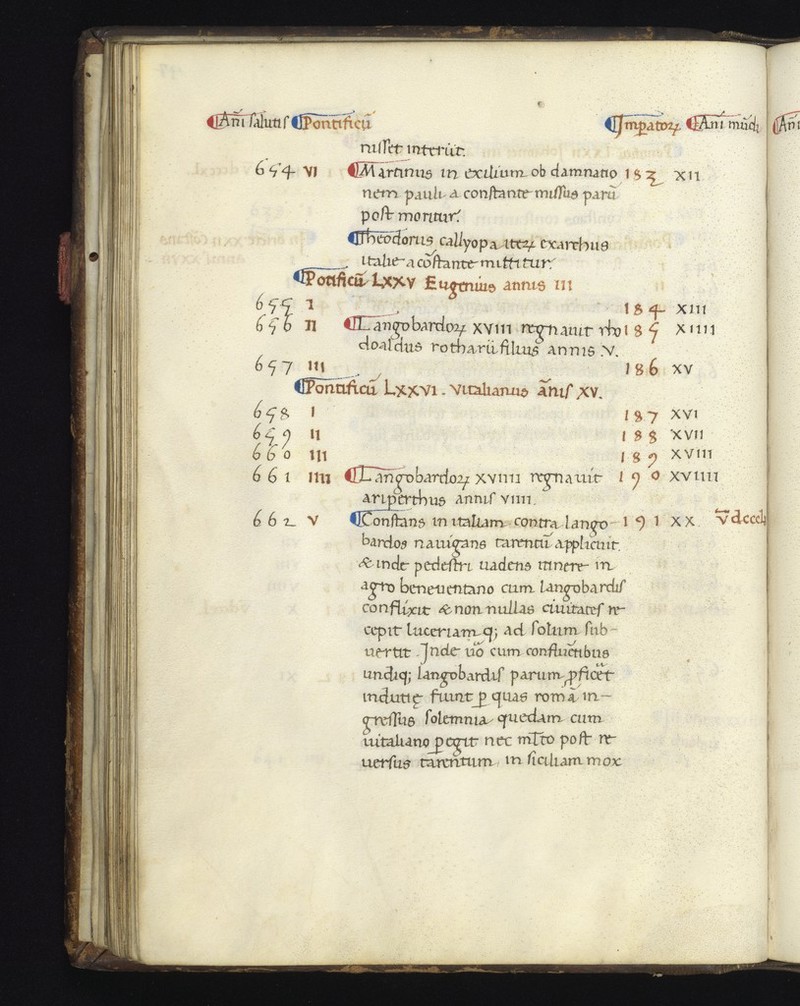 ¶Ani salutis ¶Pontificū ¶Imꝑatoꝝ ¶Ani mūdi ¶Ani
nisset interiit.
654 VI ¶Martinus in exilium ob damnatio 183 XII
nem pauli a constante missus parū
post moritur.
¶Theodorus callyopa iteꝝ exarchus
italie a cōstante mittitur.
¶Pōtificū LXXV Eugenius annis III
655 I 184 XIII
656 II ¶Langobardoꝝ XVIII regnauit rho 185 XIIII
doaldus rotharii filius annis V.
657 III 186 XV
¶Pontificū LXXVI. Vitalianus ānis XV.
658 I 187 XVI
659 II 188 XVII
660 III 189 XVIII
661 IIII ¶Langobardoꝝ XVIIII regnauit 190 XVIIII
ariperthus annis VIIII.
662 V ¶Constans in italiam contra lango- 191 XX V̄dccclj
bardos nauigans tarentū applicuit.
& inde pedestri uadens itinere in
agro beneuentano cum langobardis
conflixit & non nullas ciuitates re-
cepit luceriamq; ad solum sub-
uertit. Inde uō cum confluētibus
undiq; langobardis parum ꝓficēt
indutię fiunt ꝑ quas romā in-
gressus solemnia quedam cum
uitaliano ꝑegit nec ml̄to post re-
uersus tarentum in siciliam mox